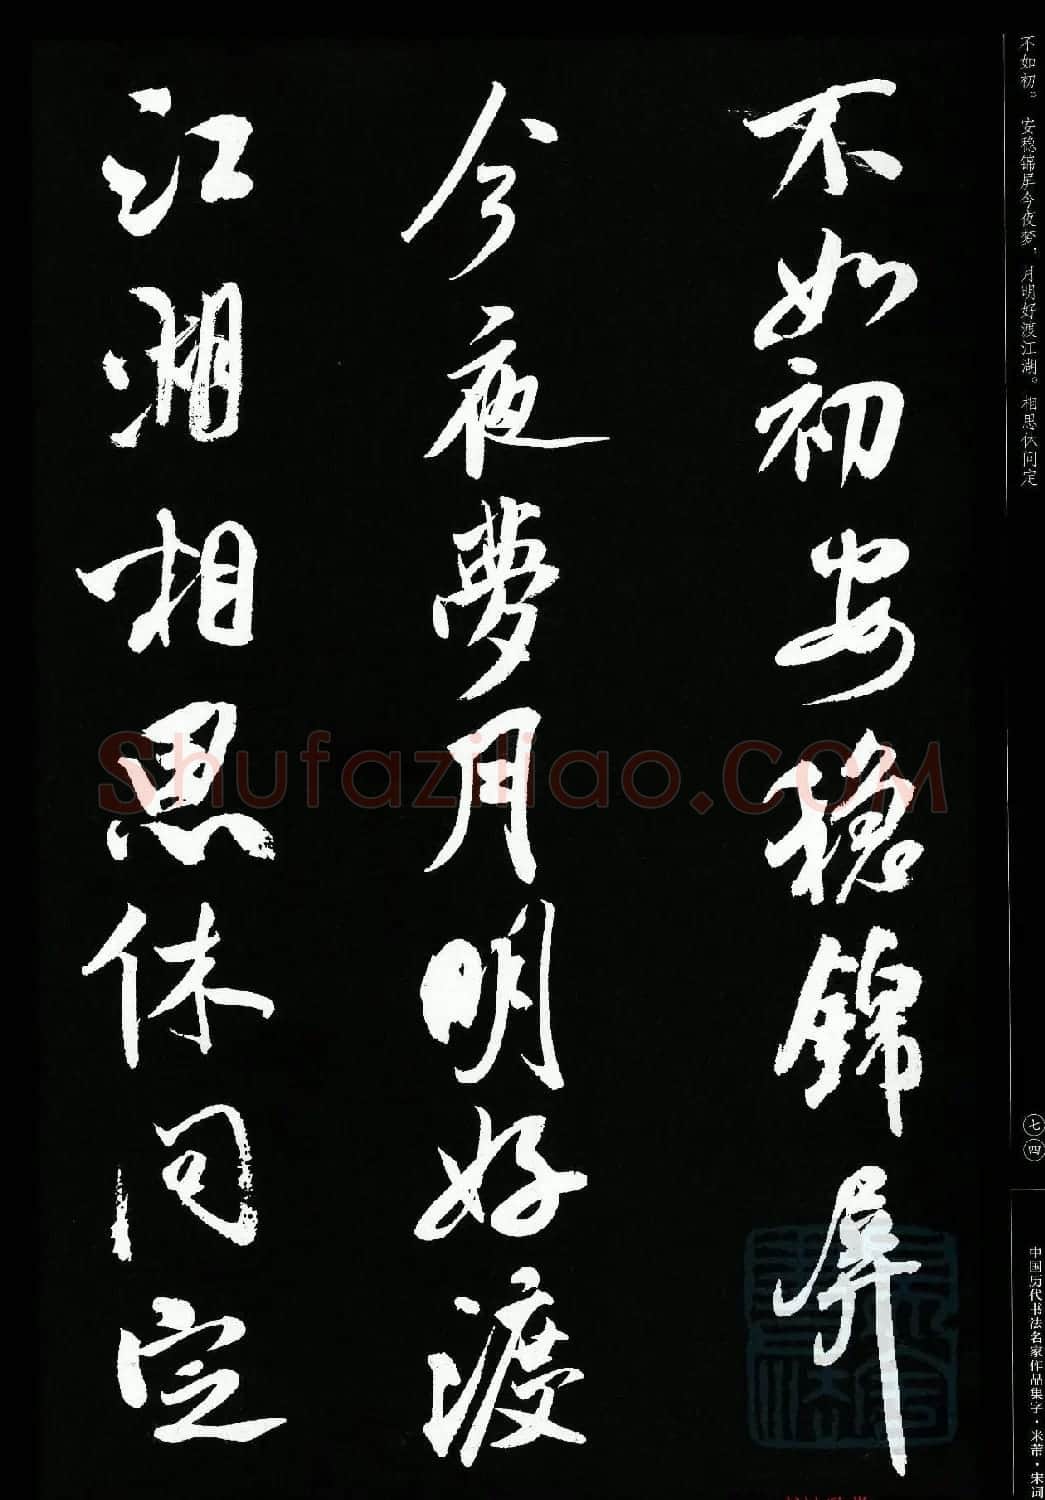 不如初。安稳锦屏今夜梦，月明好渡江湖。相思休问定
七四
中国历代书法名家作品集字·米芾·宋词
不如初安穩錦屏
今夜夢月明好渡
江湖相思休問定
Shufaziliao.COM